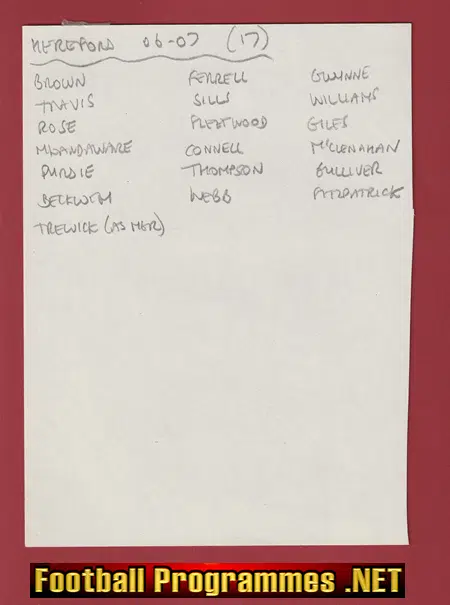 HEREFORD 06-07 (17)
BROWN FERRELL GWYNNE
TRAVIS SILLS WILLIAMS
ROSE FLEETWOOD GILES
MKANDAWARE CONNELL McCLENAHAN
PURDIE THOMPSON GULLIVER
BECKWITH WEBB FITZPATRICK
TREWICK (AS MGR)
Football Programmes .NET